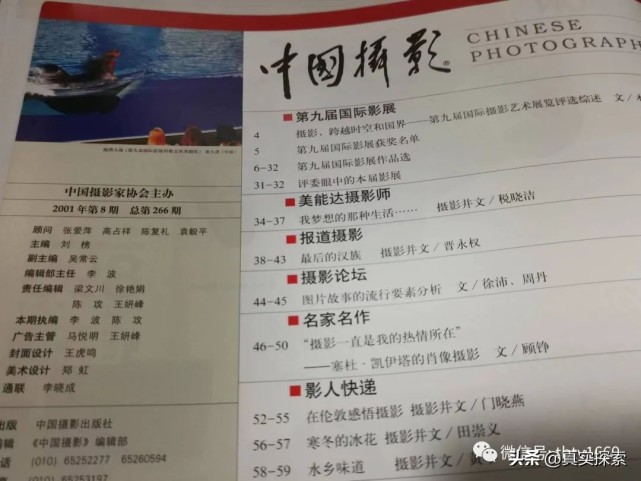 中国摄影家协会主办
2001 年第 8 期 总第 266 期
顾问 张爱萍 高占祥 陈复礼 袁毅平
主编 刘 榜
副主编 吴常云
编辑部主任 李 波
责任编辑 梁文川 徐艳娟
陈 玫 王妍峰
本期执编 李 波 陈 玫
广告主管 马悦明 王妍峰
封面设计 王虎鸣
美术设计 郑 虹
通联 李晓成
出版 中国摄影出版社
编辑 《中国摄影》编辑部
电话 (010) 65252277 65260594
中国攝影
CHINESE
PHOTOGRAPH
■ 第九届国际影展
4 摄影，跨越时空和国界——第九届国际摄影艺术展览评选综述 文/
5 第九届国际影展获奖名单
6-32 第九届国际影展作品选
31-32 评委眼中的本届影展
■ 美能达摄影师
34-37 我梦想的那种生活…… 摄影并文/税晓洁
■ 报道摄影
38-43 最后的汉族 摄影并文/晋永权
■ 摄影论坛
44-45 图片故事的流行要素分析 文/徐沛、周丹
■ 名家名作
46-50 “摄影一直是我的热情所在”
——塞杜·凯伊塔的肖像摄影 文/顾铮
■ 影人快递
52-55 在伦敦感悟摄影 摄影并文/门晓燕
56-57 寒冬的冰花 摄影并文/田崇义
58-59 水乡味道 摄影并文/
微信号
头条@真实探索